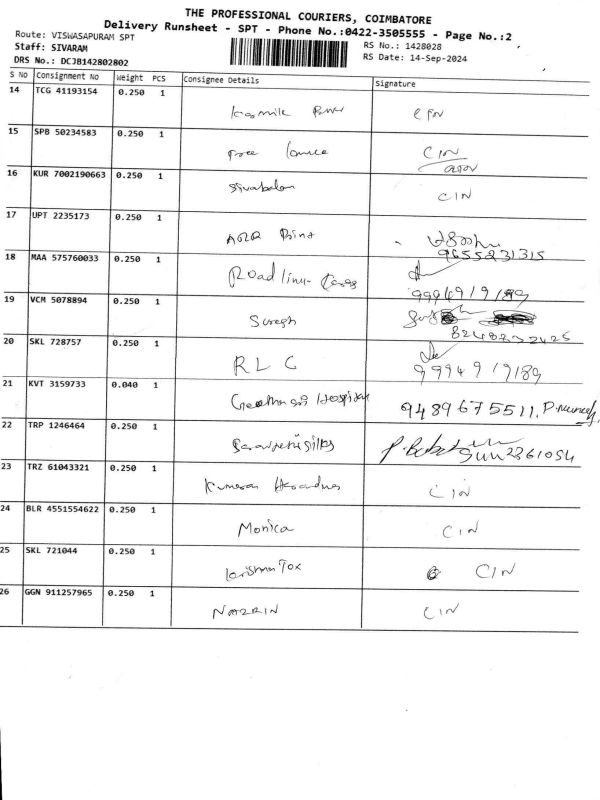 THE PROFESSIONAL COURIERS, COIMBATORE
Delivery Runsheet - SPT - Phone No.:0422-3505555 - Page No.:2
Route: VISWASAPURAM SPT
RS No.: 1428028
Staff: SIVARAM
RS Date: 14-Sep-2024
DRS No.: DCJB142802802
S No Consignment No Weight PCS Consignee Details Signature
14 TCG 41193154 0.250 1
15 SPB 50234583 0.250 1 CIN
16 KUR 7002190663 0.250 1 Sivabalan CIN
17 UPT 2235173 0.250 1 Print
9655231315
18 MAA 575760033 0.250 1 Road linu-
9994919189
19 VCM 5078894 0.250 1 Suresh
20 SKL 728757 0.250 1 R L C
9994919189
21 KVT 3159733 0.040 1 Hospital 9489675511
22 TRP 1246464 0.250 1
23 TRZ 61043321 0.250 1 CIN
24 BLR 4551554622 0.250 1 Monica CIN
25 SKL 721044 0.250 1 CIN
26 GGN 911257965 0.250 1 NAZRIN CIN